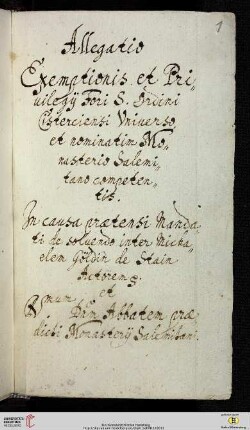 1
Allegatio
Exemptionis et Pri„
uilegÿ Fori S. Ordini
Cisterciensi Vniuerso
et nominatim Mo„
nasterio Salemi„
tano competen„
tis.
In causa prætensi Manda„
ti de soluendo inter Micha„
elem Göldin de Stain
Actorem
et
Rmum Dm Abbatem præ„
dicti Monasterÿ Salemitani.